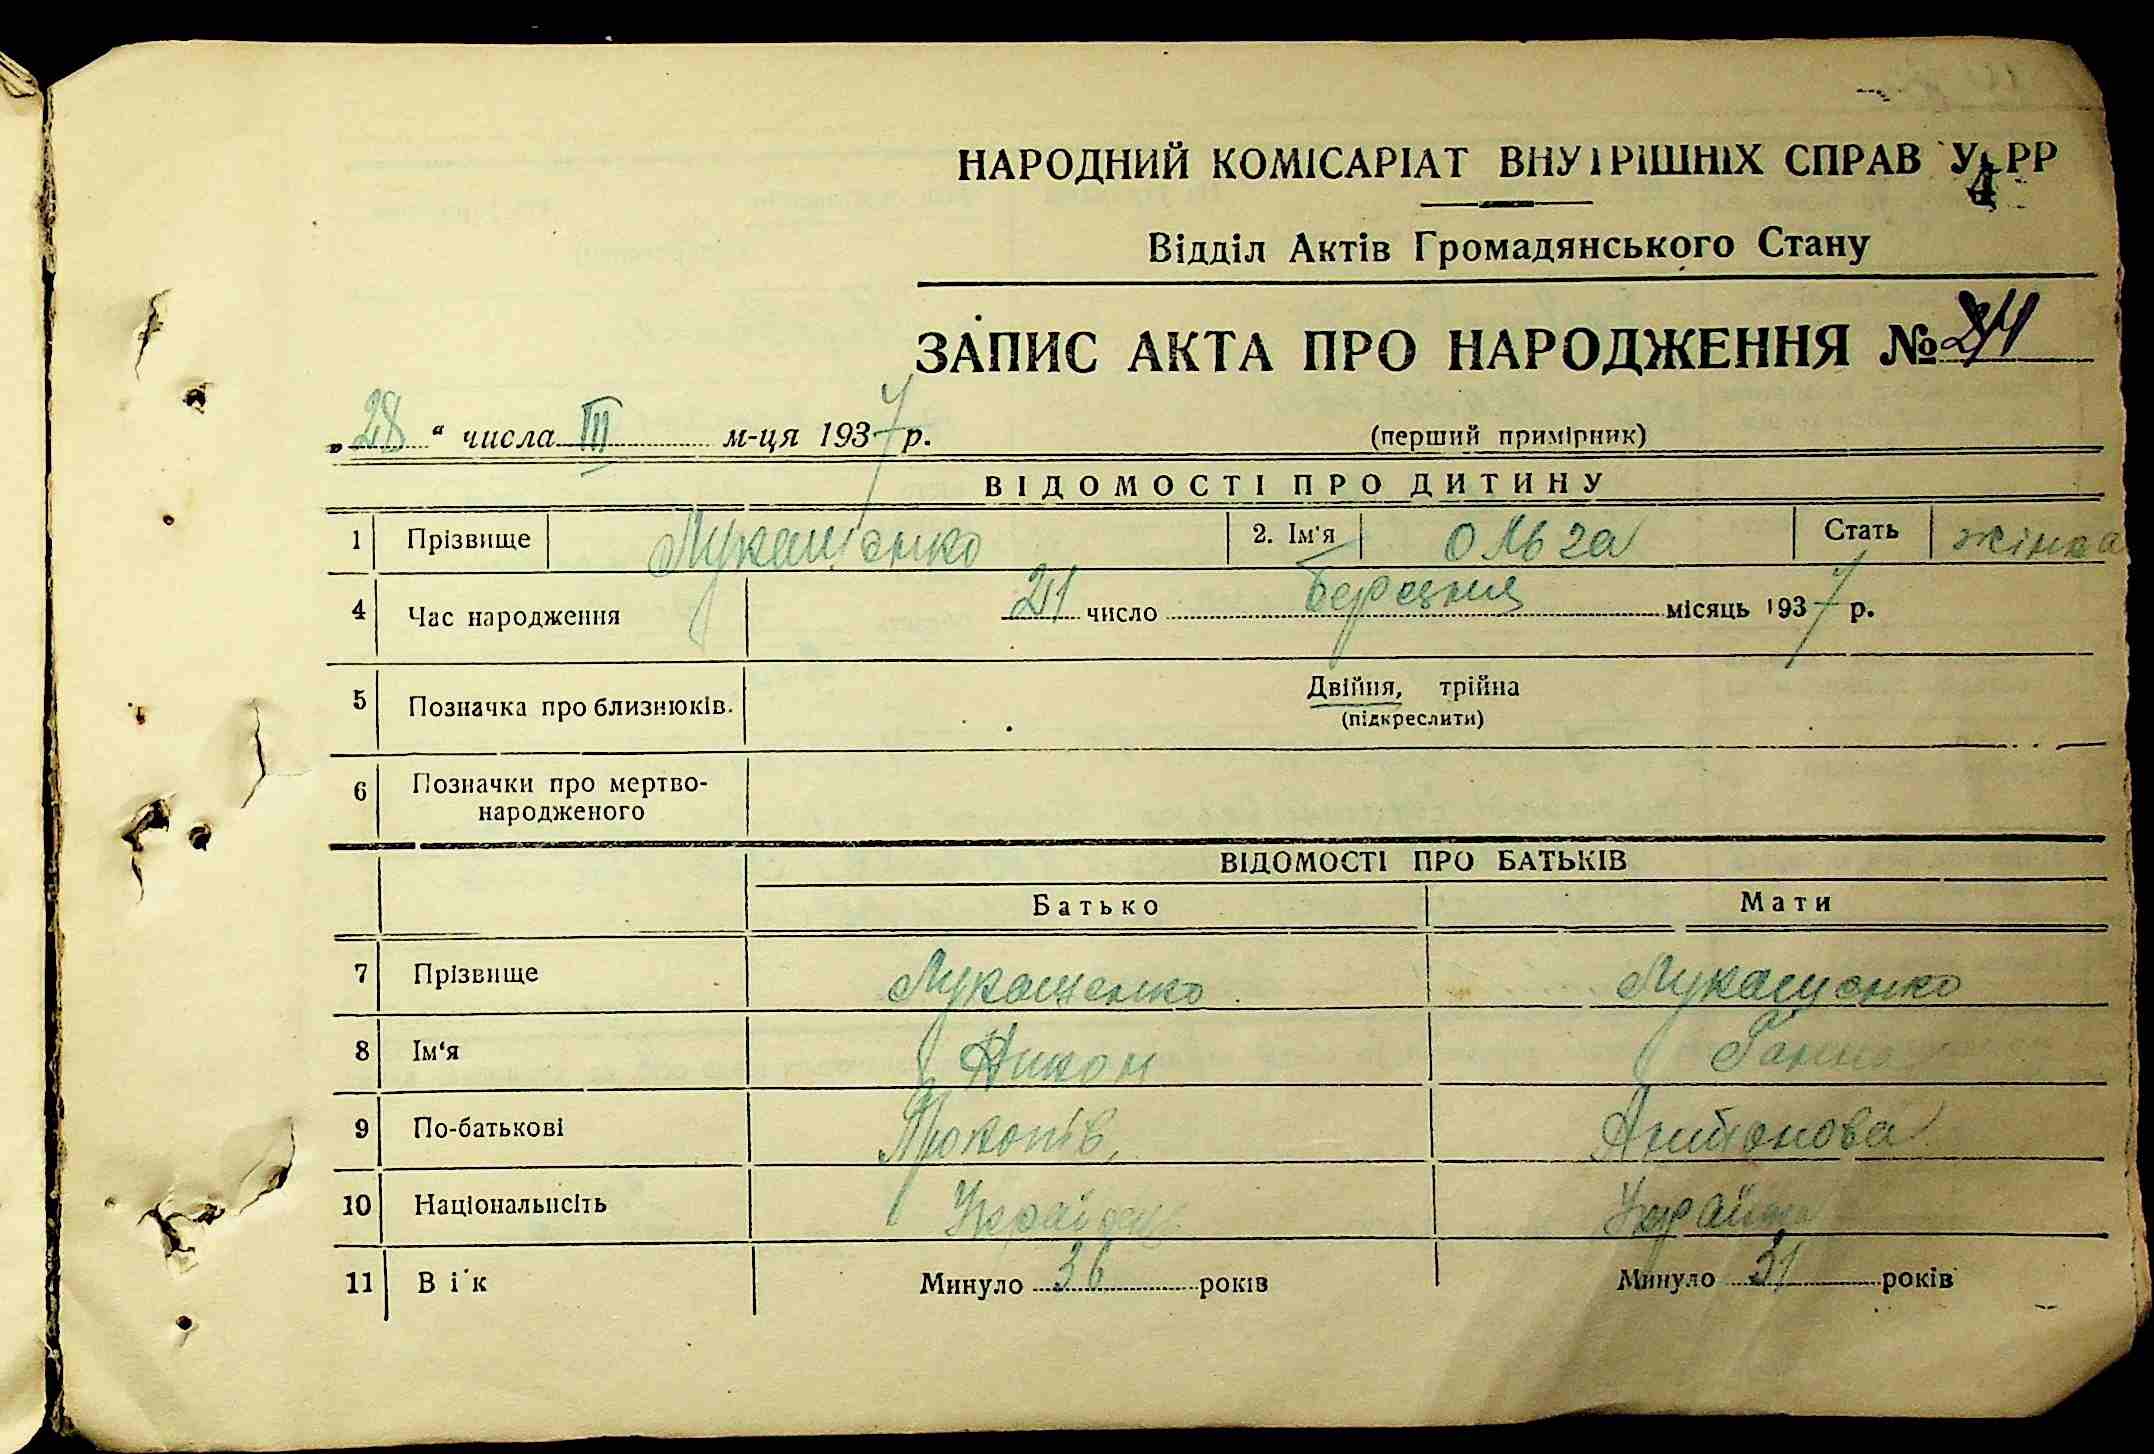 НАРОДНИЙ КОМІСАРІАТ ВНУТРІШНІХ СПРАВ УСРР
4
Відділ Актів Громадянського Стану
ЗАПИС АКТА ПРО НАРОДЖЕННЯ №
„28“ числа III м-ця 1937 р.
(перший примірник)
ВІДОМОСТІ ПРО ДИТИНУ
1 Прізвище Лукашенко 2. Ім'я Ольга Стать жінка
4 Час народження 21 число Березня місяць 1937 р.
5 Позначка про близнюків. Двійня, трійна
(підкреслити)
6 Позначки про мертво-
народженого
ВІДОМОСТІ ПРО БАТЬКІВ
Батько Мати
7 Прізвище Лукащенко Лукащенко
8 Ім'я Никон Ганна
9 По-батькові Прокопів Антонова
10 Національність Українец Україн
11 Вік Минуло 36 років Минуло 31 років